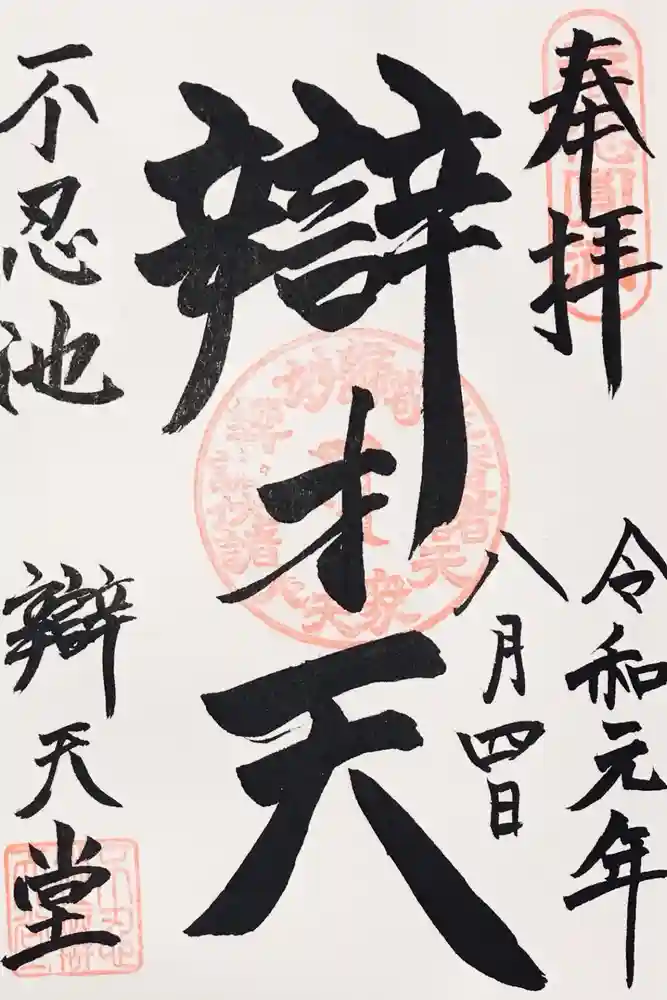 奉拝
令和元年
八月四日
辯才天
不忍池
辯天堂